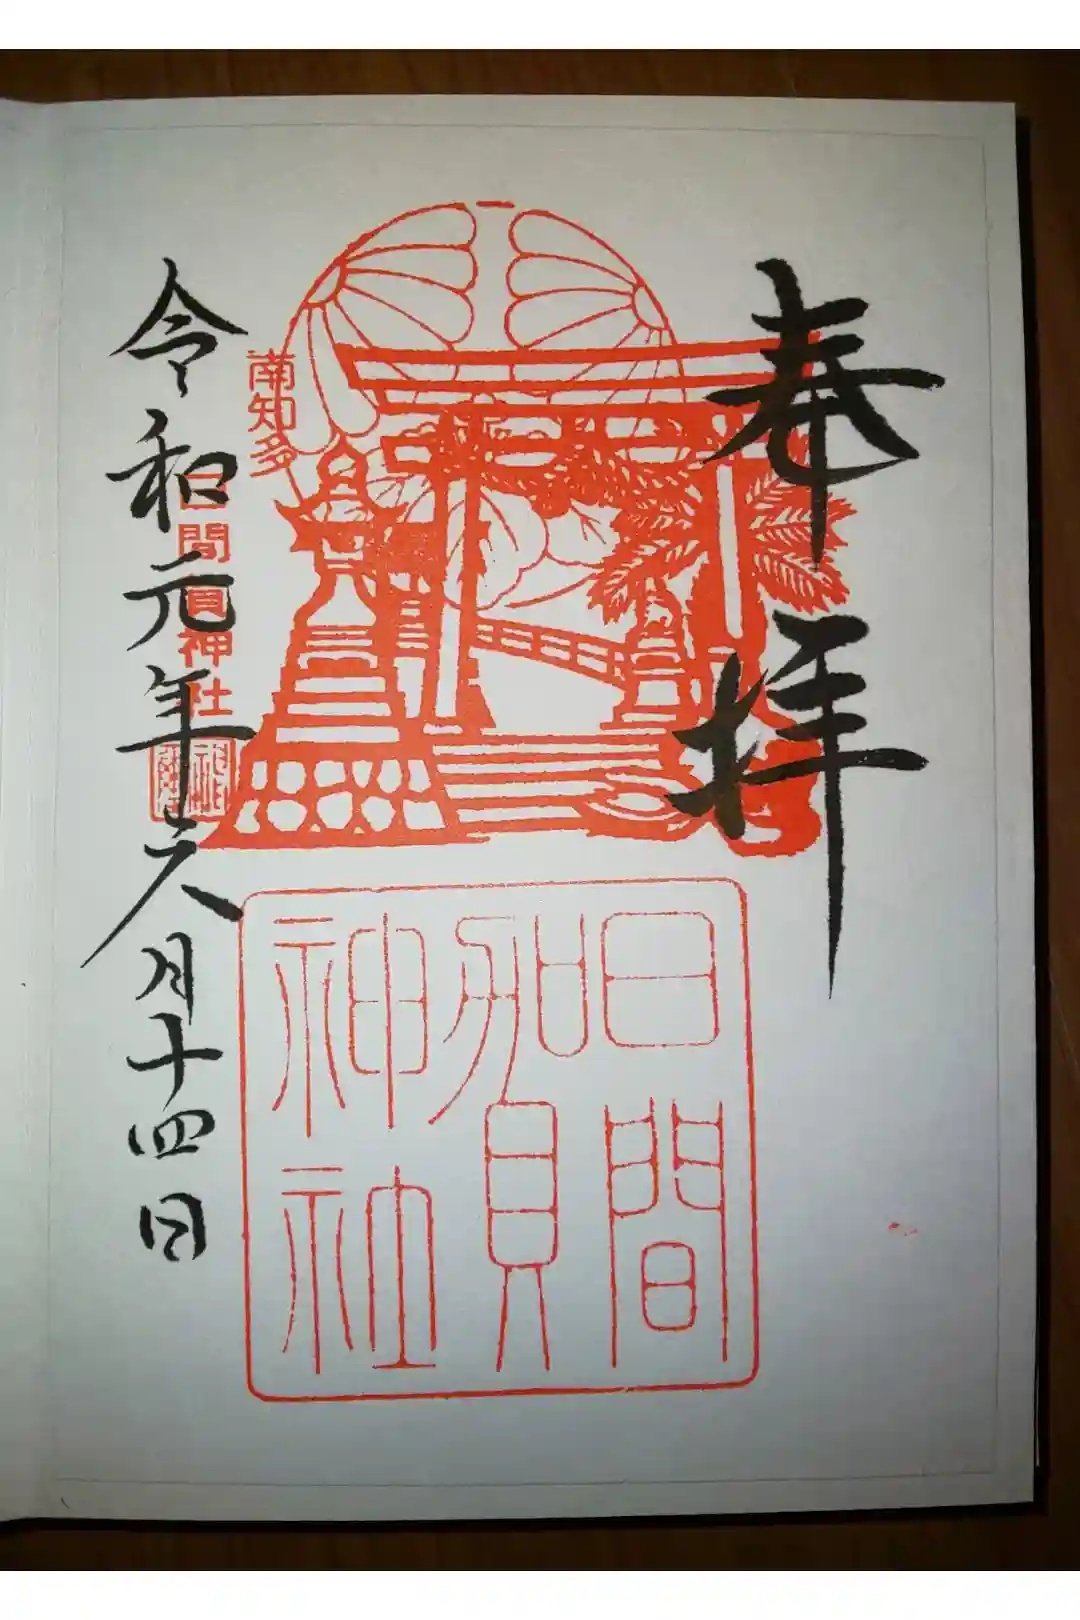 奉拝
南知多
日間賀神社
令和元年六月十四日
日間
賀
神社